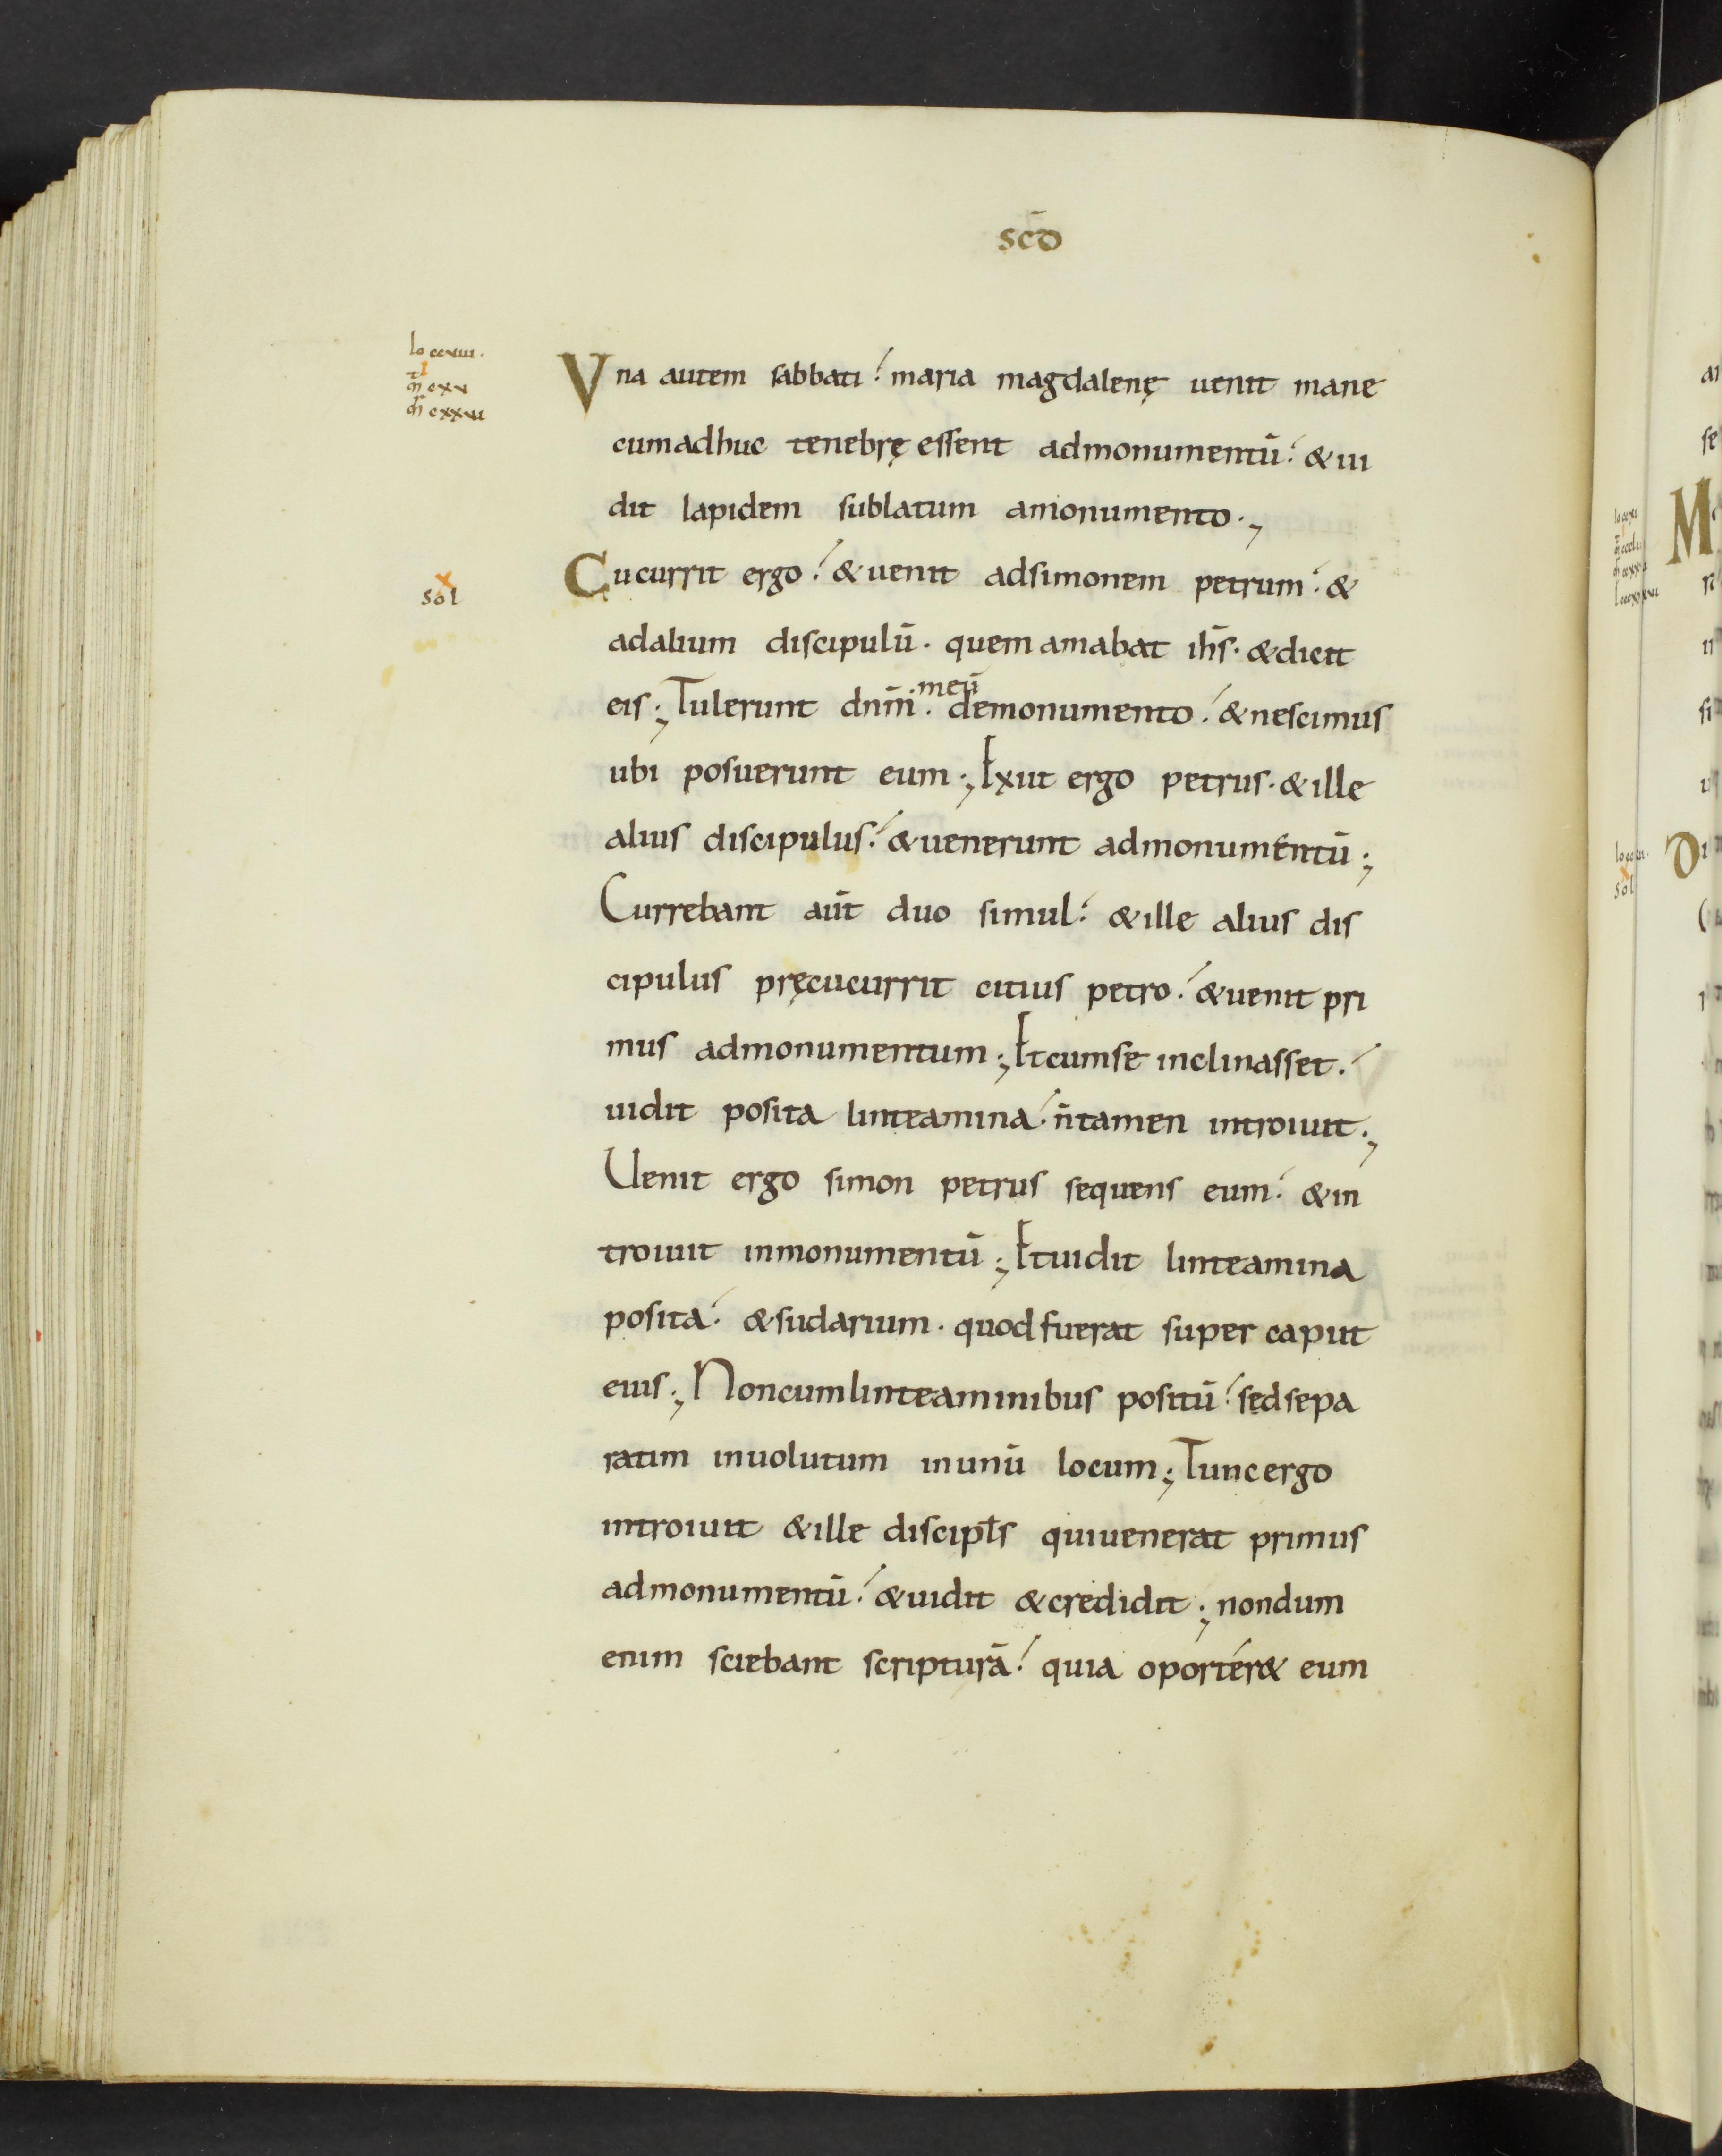 scō
lo ccviiii.
m̄ cxx
m̄ cxxvii
Vna autem sabbati. maria magdalenę uenit mane
cumadhuc tenebrę essent admonumentū. & ui
dit lapidem sublatum amonumento.,
x
sol
Cucurrit ergo. & uenit adsimonem petrum. &
adalium discipulū. quem amabat ihs̄. & dicit
meū
eis., Tulerunt dnm̄. demonumento. & nescimus
ubi posuerunt eum., Exiit ergo petrus. & ille
alius discipulus. & uenerunt admonumentū.,
Currebant aūt duo simul. & ille alius dis
cipulus pręcucurrit citius petro. & uenit pri
mus admonumentum., Etcumse inclinasset.
uidit posita linteamina. n̄tamen introiuit.,
Uenit ergo simon petrus sequens eum. & in
troiuit inmonumentū., Etuidit linteamina
posita. & sudarium. quodfuerat super caput
eius., Noncumlinteaminibus positū. sedsepa
ratim inuolutum inunū locum., Tuncergo
introiuit & ille discipl̄s quiuenerat primus
admonumentū. & uidit & credidit., nondum
enim sciebant scripturā. quia oporter& eum